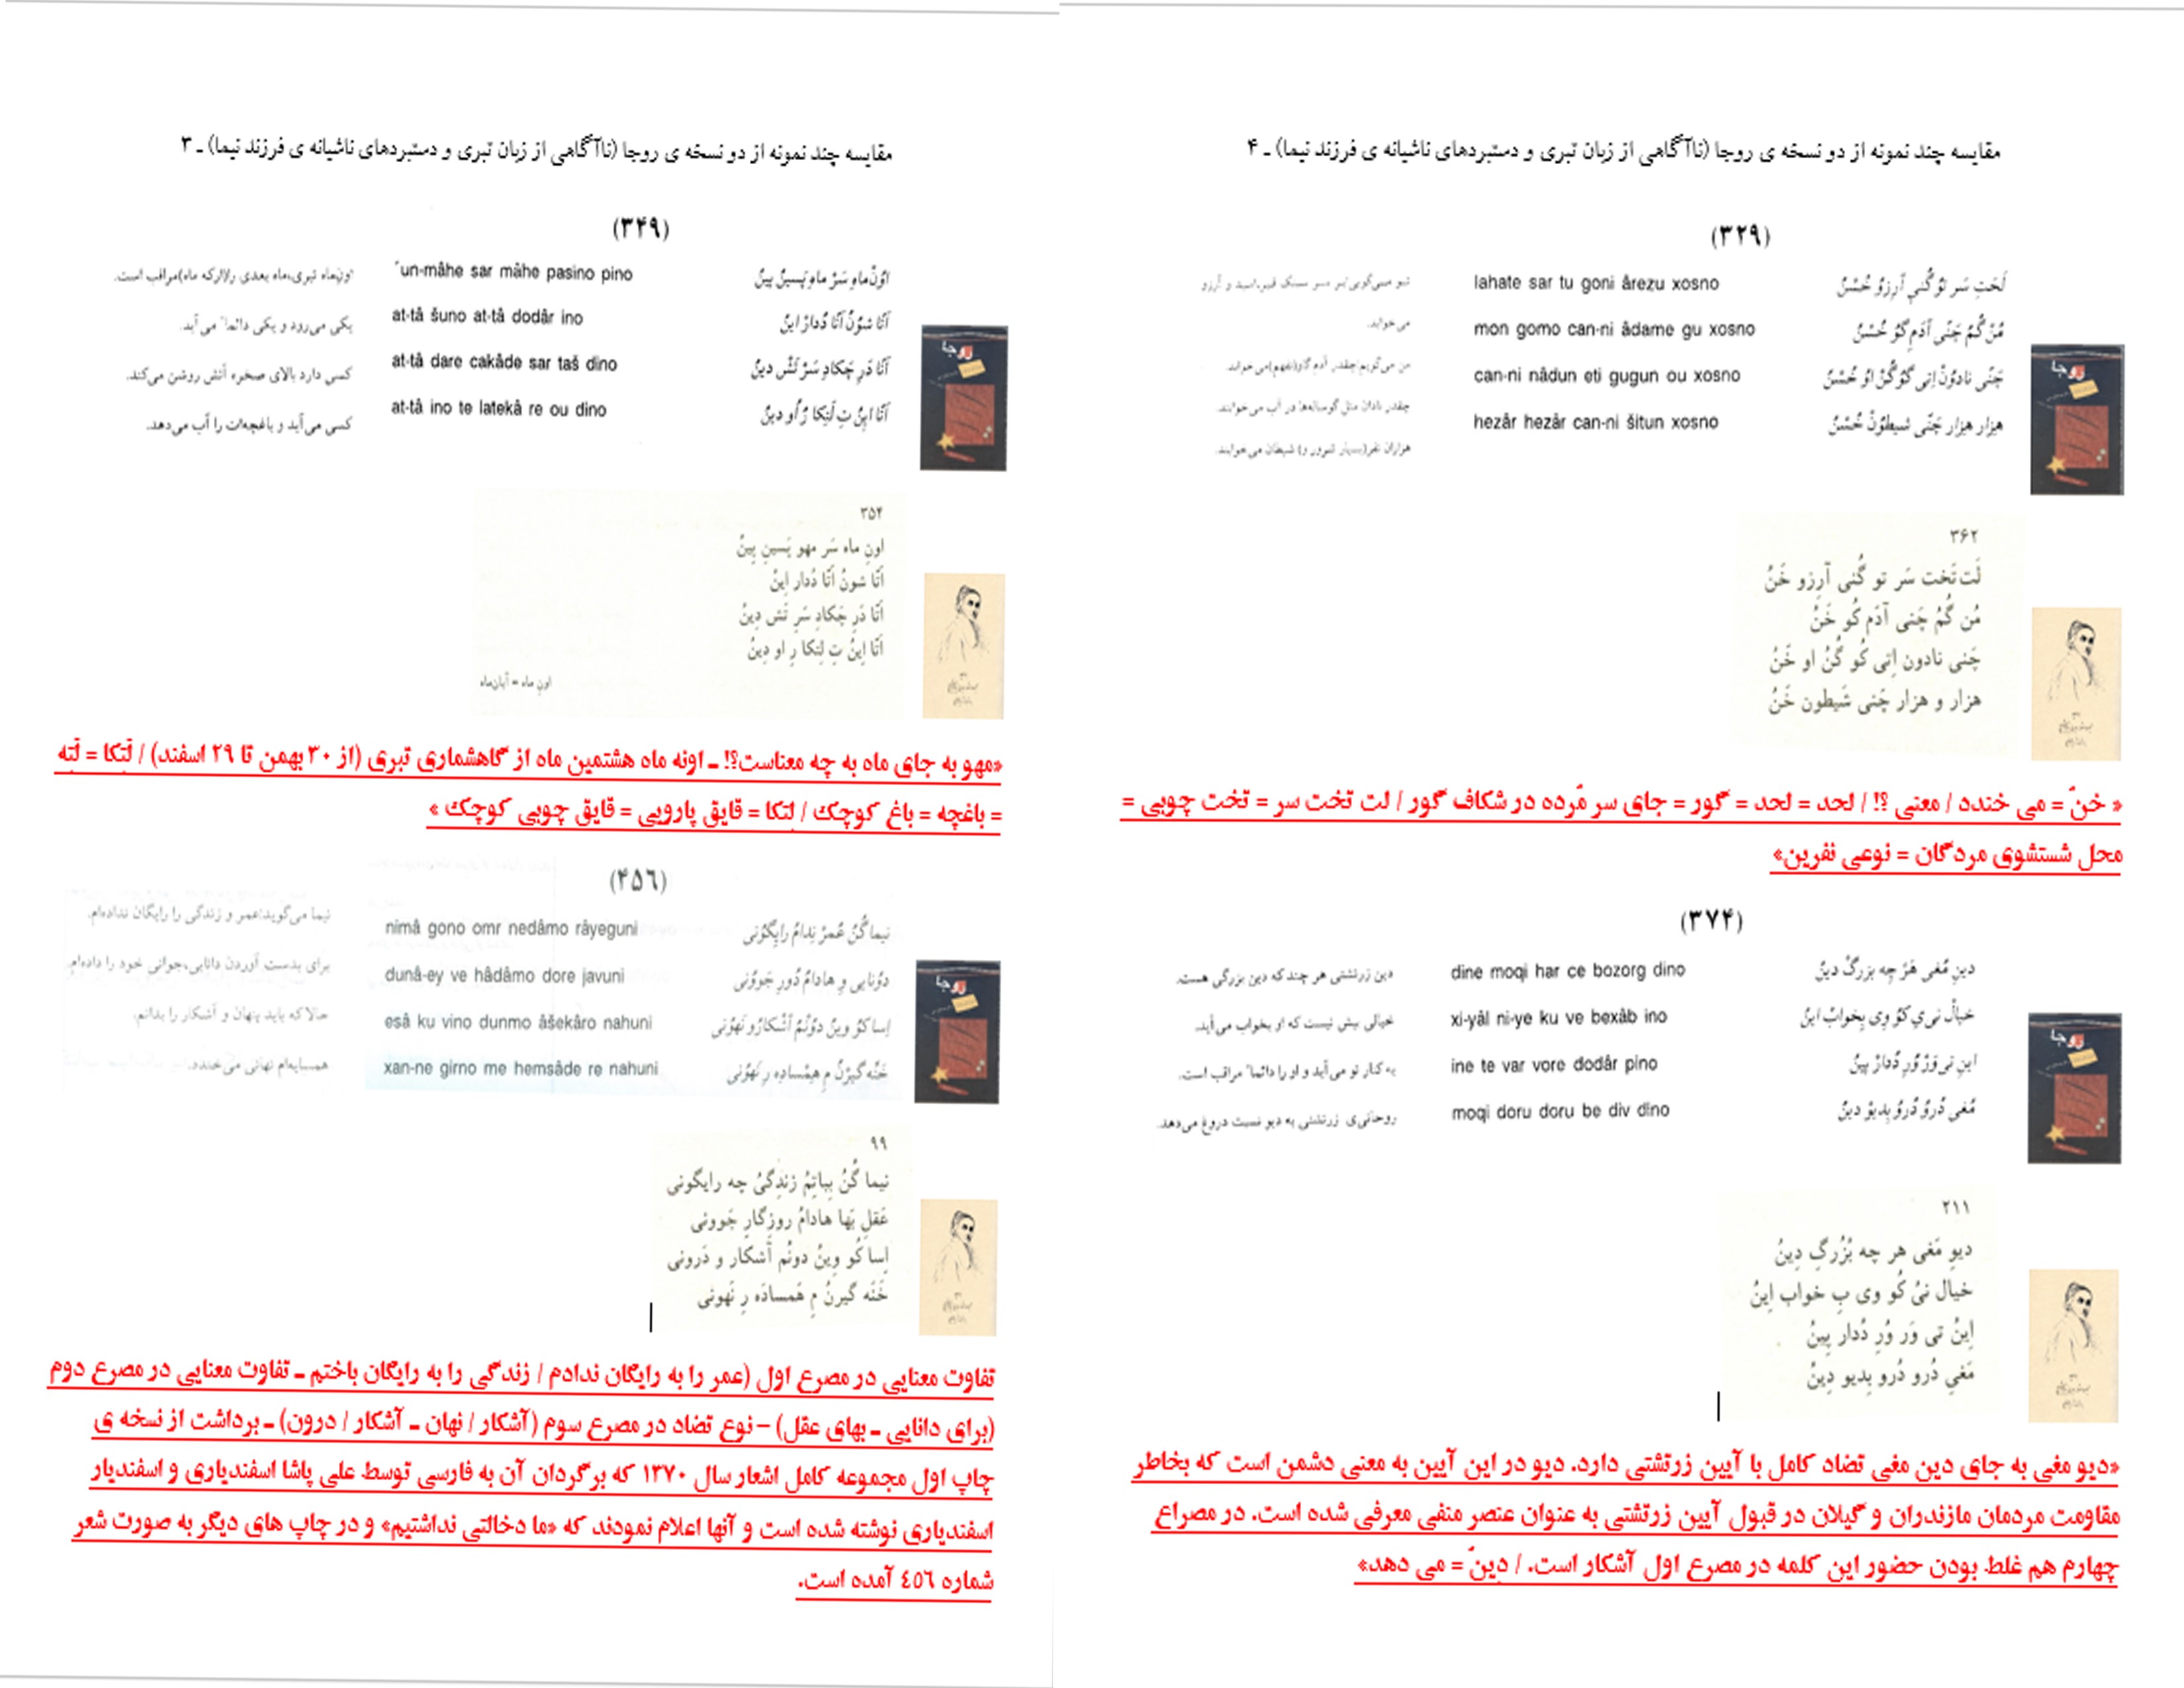 مقایسه چند نمونه از دو نسخه ی روجا (ناآگاهی از زبان تبری و دستبردهای ناشیانه ی فرزند نیما) ـ ۴
(۳۲۹)
لَحَتِ سَر تو گُنی آرِزو خُسْنُ
lahate sar tu goni ârezu xosno
تو می‌گویی بر سر سنگ قبر، امید و آرزو
می‌خوابد.
مُنْ گُمُ چَنّی آدَمِ گو خُسْنُ
mon gomo can-ni âdame gu xosno
من می‌گویم چقدر آدم گاو(نفهم)می خوابد.
چَنّی نادوُنْ اِتی گوُگُنْ اوُ خُسْنُ
can-ni nâdun eti gugun ou xosno
چقدر نادان مثل گوساله‌ها در آب می‌خوابند.
هِزار هِزار چَنّی شیطوُنْ خُسْنُ
hezâr hezâr can-ni šitun xosno
هزاران نفر(بسیار شرور و) شیطان می خوابند.
روجا
۳۶۲
لَت تَخت سَر تو گُنی آرِزو خَنُ
مُن گُمُ چَنی آدَم گو خَنُ
چَنی نادون اِتی گو گُنُ او خَنُ
هزار و هزار چَنی شَیطون خَنُ
« خنّ = می خندد / معنی ؟! / لحد = لحد = گور = جای سر مُرده در شکاف گور / لت تخت سر = تخت چوبی =
محل شستشوی مردگان = نوعی نفرین»
(۳۷۴)
دینِ مُغی هَرْ چِه بزرگْ دینُ
dine moqi har ce bozorg dino
دین زرتشتی هر چند که دین بزرگی هست.
خیالْ نی‌یِ کوُ وِی بِخوابْ اینُ
xi-yâl ni-ye ku ve bexâb ino
خیالی بیش نیست که او بخواب می‌آید.
اینِ تی وَرْ وُرِ دُدارْ پینُ
ine te var vore dodâr pino
به کنار تو می‌آید و او را دائما" مراقب است.
مُغی دُروُ دُروُ بِدیوْ دینُ
moqi doru doru be div dino
روحانی‌ی زرتشتی به دیو نسبت دروغ می‌دهد.
روجا
۲۱۱
دیوِ مَغی هر چه بُزُرگِ دِینُ
خیال نیُ کُو وی بِ خواب اِینُ
اِینُ تی وَر وُرِ دُدار پِینُ
مَغیِ دُرو دُرو بِدیو دِینُ
«دیو مغی به جای دین مغی تضاد کامل با آیین زرتشتی دارد. دیو در این آیین به معنی دشمن است که بخاطر
مقاومت مردمان مازندران و گیلان در قبول آیین زرتشتی به عنوان عنصر منفی معرفی شده است. در مصراع
چهارم هم غلط بودن حضور این کلمه در مصرع اول آشکار است. / دینّ = می دهد»
مقایسه چند نمونه از دو نسخه ی روجا (ناآگاهی از زبان تبری و دستبردهای ناشیانه ی فرزند نیما) ـ ۳
(۳۴۹)
اوُنْ‌ماهِ سَرْ ماهِ پَسینُ پینُ
un-mâhe sar mâhe pasino pino
اونِ‌ماه تبری،ماه بعدی را(ارکه ماه)مراقب است.
اَتّا شوُنُ اَتّا دُدارْ اینُ
at-tâ šuno at-tâ dodâr ino
یکی می‌رود و یکی دائما" می آید.
اَتّا دَرِ چَکادِ سَرْ تَشْ دینُ
at-tâ dare cakâde sar taš dino
کسی دارد بالای صخره آتش روشن می‌کند.
اَتّا اینُ تِ لَتِکا رِ اُو دینُ
at-tâ ino te latekâ re ou dino
کسی می‌آید و باغچه‌ات را آب می‌دهد.
روجا
۳۵۴
اونِ ماه سَر مهو پَسینِ پِینُ
اَتّا شونُ اَتّا دُدار اِینُ
اَتّا دَرِ چَکادِ سَرِ تَش دِینُ
اَتّا اِینُ تِ لِتکا رِ او دِینُ
اونِ ماه = آبان‌ماه
«مهو به جای ماه به چه معناست؟! ـ اونه ماه هشتمین ماه از گاهشماری تبری (از ۳۰ بهمن تا ۲۹ اسفند) / لَتکا = لَته
= باغچه = باغ کوچک / لتکا = قایق پارویی = قایق چوبی کوچک »
(۴۵۶)
نیما گُنُ عُمرْ نِدامُ رایِگوُنی
nimâ gono omr nedâmo râyeguni
نیما می‌گوید:عمر و زندگی را رایگان نداده‌ام.
دوُنایی وِ هادامُ دُورِ جَووُنی
dunâ-ey ve hâdâmo dore javuni
برای بدست آوردن دانایی،جوانی خود را داده‌ام.
اِسا کوُ وینُ دوُنُمُ آشْکارُو نَهوُنی
esâ ku vino dunmo âšekâro nahuni
حالا که باید پنهان و آشکار را بدانم،
خَنّه گیرْنُ مِ هِمْسادِه رِ نَهوُنی
xan-ne girno me hemsâde re nahuni
همسایه‌ام نهانی می‌خندد.
روجا
۹۹
نیما گُنُ بِباتِمُ زِندِگیُ چه رایگونی
عَقلِ بَها هادامُ روزِگارِ جَوونی
اِسا کُو وِینُ دونُم آشکار و دَرونی
خَنَه گیرنُ مِ هَمسادَه رِ نَهونی
تفاوت معنایی در مصرع اول (عمر را به رایگان ندادم / زندگی را به رایگان باختم ـ تفاوت معنایی در مصرع دوم
(برای دانایی ـ بهای عقل) – نوع تضاد در مصرع سوم (آشکار / نهان ـ آشکار / درون) ـ برداشت از نسخه ی
چاپ اول مجموعه کامل اشعار سال ۱۳۷۰ که برگردان آن به فارسی توسط علی پاشا اسفندیاری و اسفندیار
اسفندیاری نوشته شده است و آنها اعلام نمودند که «ما دخالتی نداشتیم» و در چاپ های دیگر به صورت شعر
شماره ٤٥٦ آمده است.